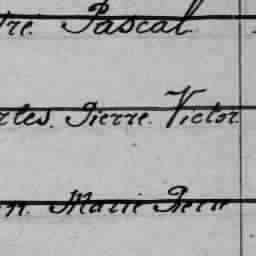 tre. Pascal
rles. Pierre. Victor
n. Marie Pierre